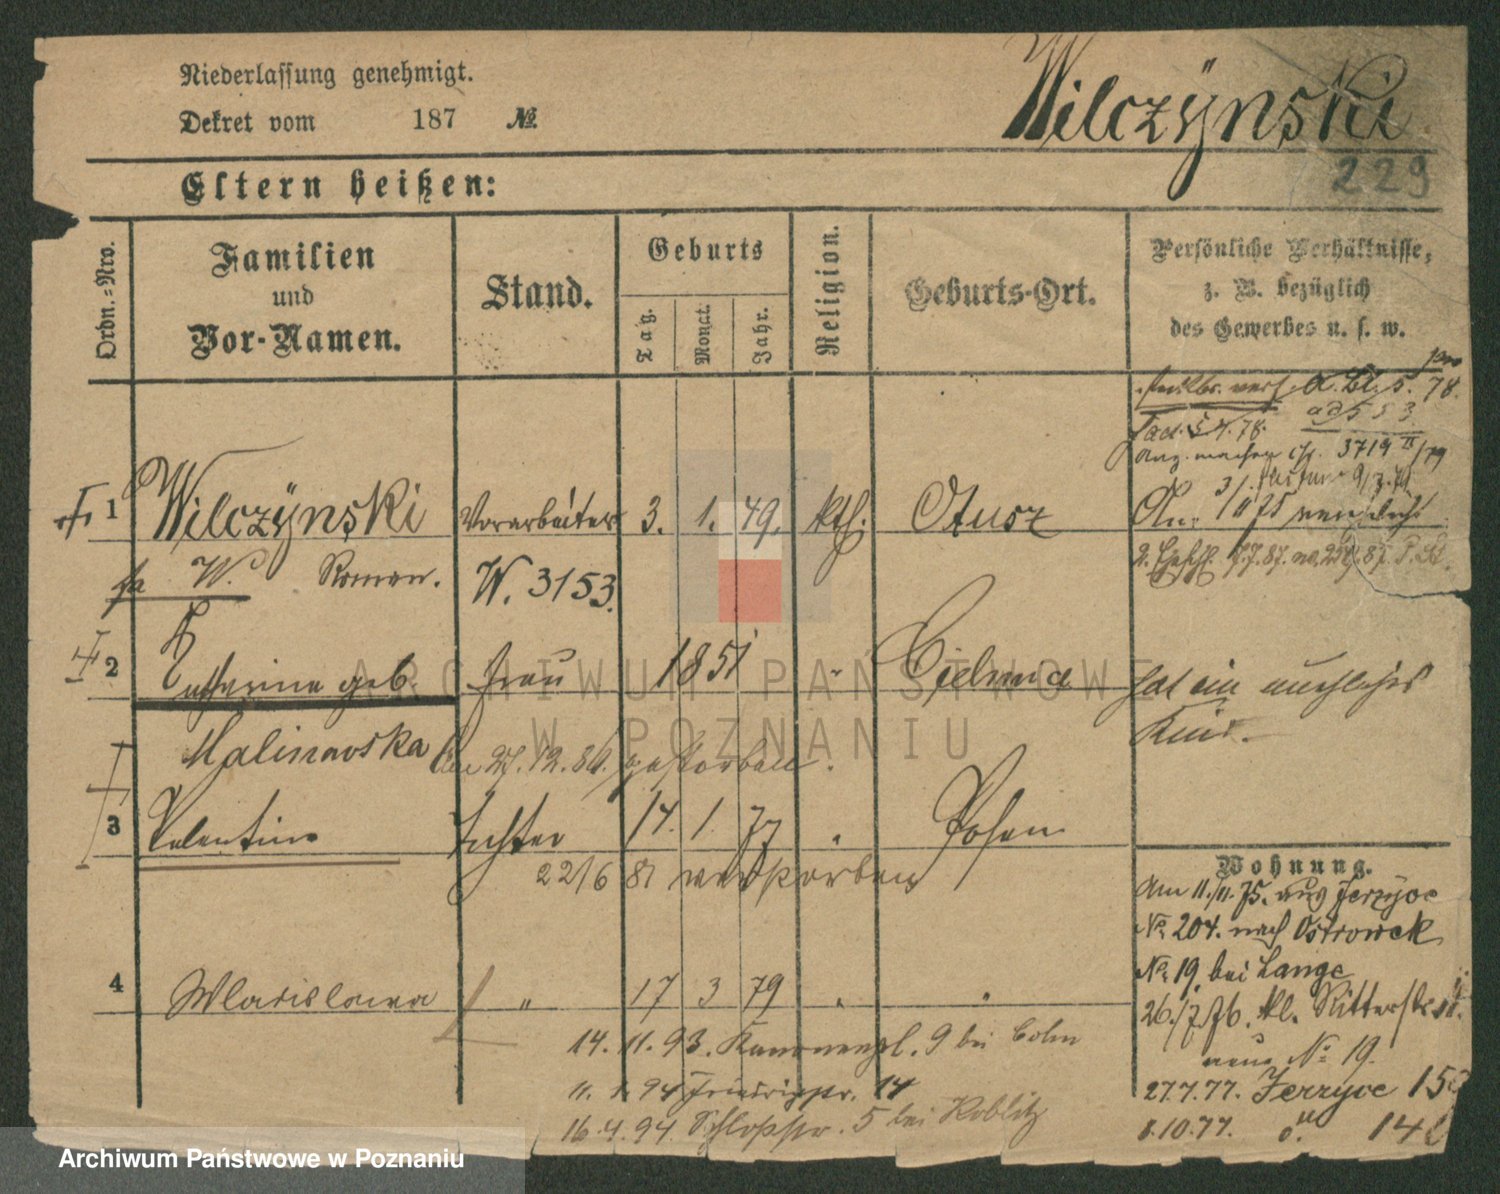 Niederlassung genehmigt.
Dekret vom 187 №
Wilczÿnski
229
Eltern heißen:
Ordn.=Nro.
Familien und Vor-Namen.
Stand.
Geburts
Tag.
Monat.
Jahr.
Religion.
Geburts-Ort.
Persönliche Verhältnisse,
z. B. bezüglich
des Gewerbes u. s. w.
a. Bl. 5. 78.
ad 553
3719 II/79
1 Wilczÿnski Vorarbeiter 3. 1. 49. kth. Otusz
W. Roman. W. 3153.
2 Katharina geb. Frau 1851 " hat ein
Kind.
Malinowska 27.12.86 gestorben.
3 Valentine Tochter 14. 1. 77 " Posen
22/6 81 verstorben
Wohnung.
Am 11./11.75. aus Jerzyce
№ 204. nach Ostrowek
№ 19. bei Lange
4 Wladislawa " 17 3 79 " "
26./7.76. kl. Ritterstr.
№ 19.
14. 11. 93. Kanonenpl. 9 bei Cohn
27.7.77. Jerzyce
11. 1. 94 14
1.10.77.
16.4.94. Schloßstr. 5 bei Koblitz
ARCHIWUM PAŃSTWOWE
W POZNANIU
Archiwum Państwowe w Poznaniu